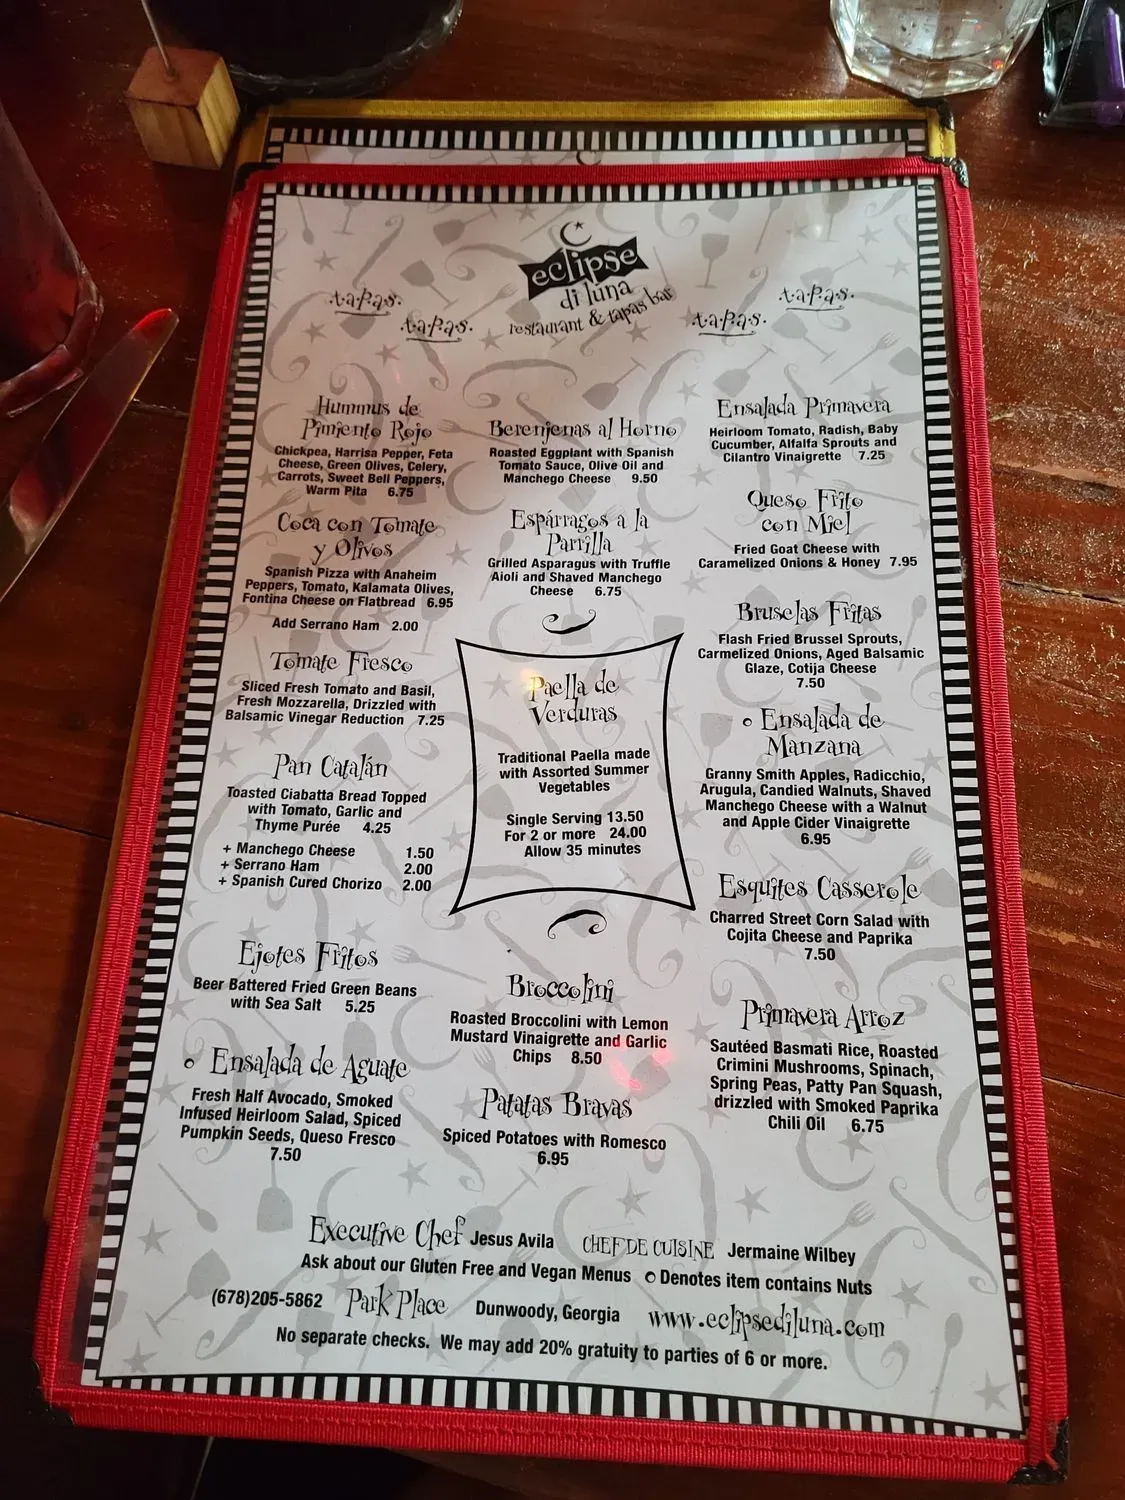 eclipse
di luna
restaurant & tapas bar
tapas.
tapas.
tapas.
tapas.
Hummus de
Pimiento Rojo
Chickpea, Harrisa Pepper, Feta
Cheese, Green Olives, Celery,
Carrots, Sweet Bell Peppers,
Warm Pita 6.75
Coca con Tomate
y Olivos
Spanish Pizza with Anaheim
Peppers, Tomato, Kalamata Olives,
Fontina Cheese on Flatbread 6.95
Add Serrano Ham 2.00
Tomate Fresco
Sliced Fresh Tomato and Basil,
Fresh Mozzarella, Drizzled with
Balsamic Vinegar Reduction 7.25
Pan Catalán
Toasted Ciabatta Bread Topped
with Tomato, Garlic and
Thyme Purée 4.25
+ Manchego Cheese 1.50
+ Serrano Ham 2.00
+ Spanish Cured Chorizo 2.00
Ejotes Fritos
Beer Battered Fried Green Beans
with Sea Salt 5.25
Ensalada de Aguate
Fresh Half Avocado, Smoked
Infused Heirloom Salad, Spiced
Pumpkin Seeds, Queso Fresco
7.50
Berenjenas al Horno
Roasted Eggplant with Spanish
Tomato Sauce, Olive Oil and
Manchego Cheese 9.50
Espárragos a la
Parrilla
Grilled Asparagus with Truffle
Aioli and Shaved Manchego
Cheese 6.75
Paella de
Verduras
Traditional Paella made
with Assorted Summer
Vegetables
Single Serving 13.50
For 2 or more 24.00
Allow 35 minutes
Broccolini
Roasted Broccolini with Lemon
Mustard Vinaigrette and Garlic
Chips 8.50
Patatas Bravas
Spiced Potatoes with Romesco
6.95
Ensalada Primavera
Heirloom Tomato, Radish, Baby
Cucumber, Alfalfa Sprouts and
Cilantro Vinaigrette 7.25
Queso Frito
con Miel
Fried Goat Cheese with
Caramelized Onions & Honey 7.95
Bruselas Fritas
Flash Fried Brussel Sprouts,
Carmelized Onions, Aged Balsamic
Glaze, Cotija Cheese
7.50
Ensalada de
Manzana
Granny Smith Apples, Radicchio,
Arugula, Candied Walnuts, Shaved
Manchego Cheese with a Walnut
and Apple Cider Vinaigrette
6.95
Esquites Casserole
Charred Street Corn Salad with
Cojita Cheese and Paprika
7.50
Primavera Arroz
Sautéed Basmati Rice, Roasted
Crimini Mushrooms, Spinach,
Spring Peas, Patty Pan Squash,
drizzled with Smoked Paprika
Chili Oil 6.75
Executive Chef Jesus Avila CHEF DE CUISINE Jermaine Wilbey
Ask about our Gluten Free and Vegan Menus Denotes item contains Nuts
(678)205-5862 Park Place Dunwoody, Georgia www.eclipsediluna.com
No separate checks. We may add 20% gratuity to parties of 6 or more.